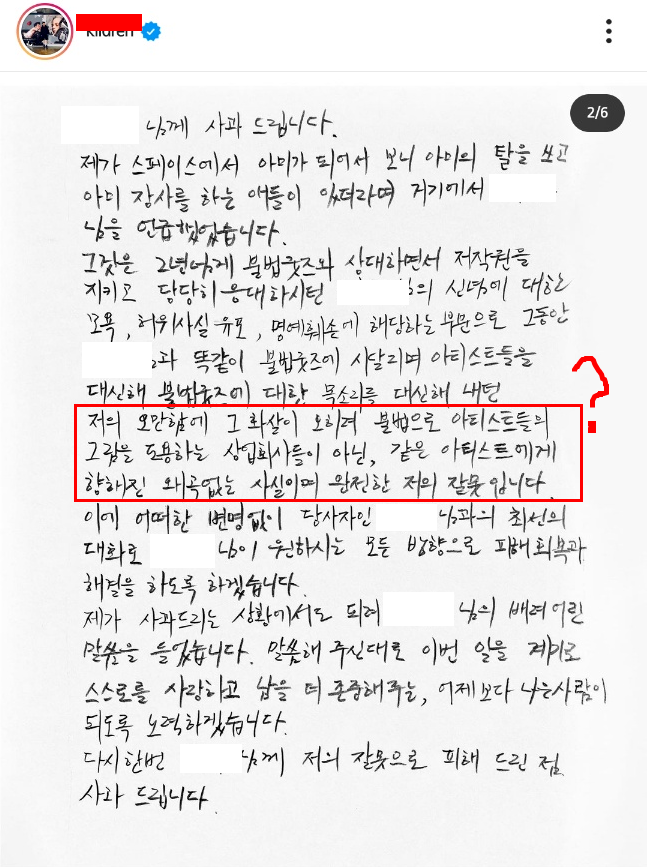 2/6
님께 사과 드립니다.
제가 스페이스에서 아미가 되어서 보니 아미의 탈을 쓰고
아미 장사를 하는 애들이 있더라며 거기에서
님을 언급했었습니다.
그것은 2년 불법굿즈와 상대하면서 저작권을
지키고 당당히 응대하시던 의 신념에 대한
모욕, 허위사실 유포, 명예훼손에 해당하는 부분으로 그동안
과 똑같이 불법굿즈에 시달리며 아티스트들을
대신해 불법굿즈에 대한 목소리를 대신해 내던
저의 오만함에 그 화살이 오히려 불법으로 아티스트들의
그림을 도용하는 상업회사들이 아닌, 같은 아티스트에게
향해진 왜곡없는 사실이며 완전한 저의 잘못입니다.
이에 어떠한 변명없이 당사자인 님과의 최선의
대화로 님이 원하시는 모든 방향으로 피해회복과
해결을 하도록 하겠습니다.
제가 사과드리는 상황에서도 되려 님의 배려어린
말씀을 들었습니다. 말씀해 주신대로 이번 일을 계기로
스스로를 사랑하고 삶을 더 존중해주는, 어제보다 나은사람이
되도록 노력하겠습니다.
다시한번 님께 저의 잘못으로 피해 드린 점
사과 드립니다.